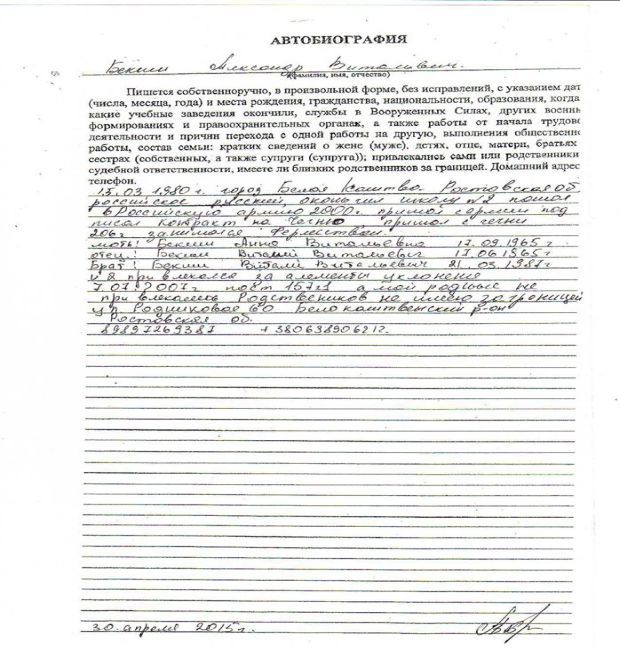 АВТОБИОГРАФИЯ
Бекиш Александр Витальевич.
(фамилия, имя, отчество)
Пишется собственноручно, в произвольной форме, без исправлений, с указанием дат
(числа, месяца, года) и места рождения, гражданства, национальности, образования, когда
какие учебные заведения окончили, службы в Вооруженных Силах, других военнь
формированиях и правоохранительных органах, а также работы от начала трудово
деятельности и причин перехода с одной работы на другую, выполнения общественно
работы, состав семьи: кратких сведений о жене (муже), детях, отце, матери, братьях
сестрах (собственных, а также супруги (супруга)); привлекались сами или родственники
судебной ответственности, имеете ли близких родственников за границей. Домашний адрес
телефон.
15.03 1980 г. город Белая Ростовская об
российское русский, окончил школу №2 пошол
в Российскую армию 2000г. пришол с армии под
писал контракт на Чечню пришол с чечни
206г. занимался Фермеством.
мать: Бекиш Анна Витальевна 17.09.1965г
отец: Бекиш Виталий Витальевич 17.06.1965г
Брат: Бекиш Витали Витальевич 21.03.1987г
я привлекался за алементы уклонение
7.07.2007г. 157 а мой родные не
привлекались Родствеников не имею заграницей
ул Родниковая 60 р-он
Ростовская об.
89897269387 +380638906212.
30 апреля 2015г.